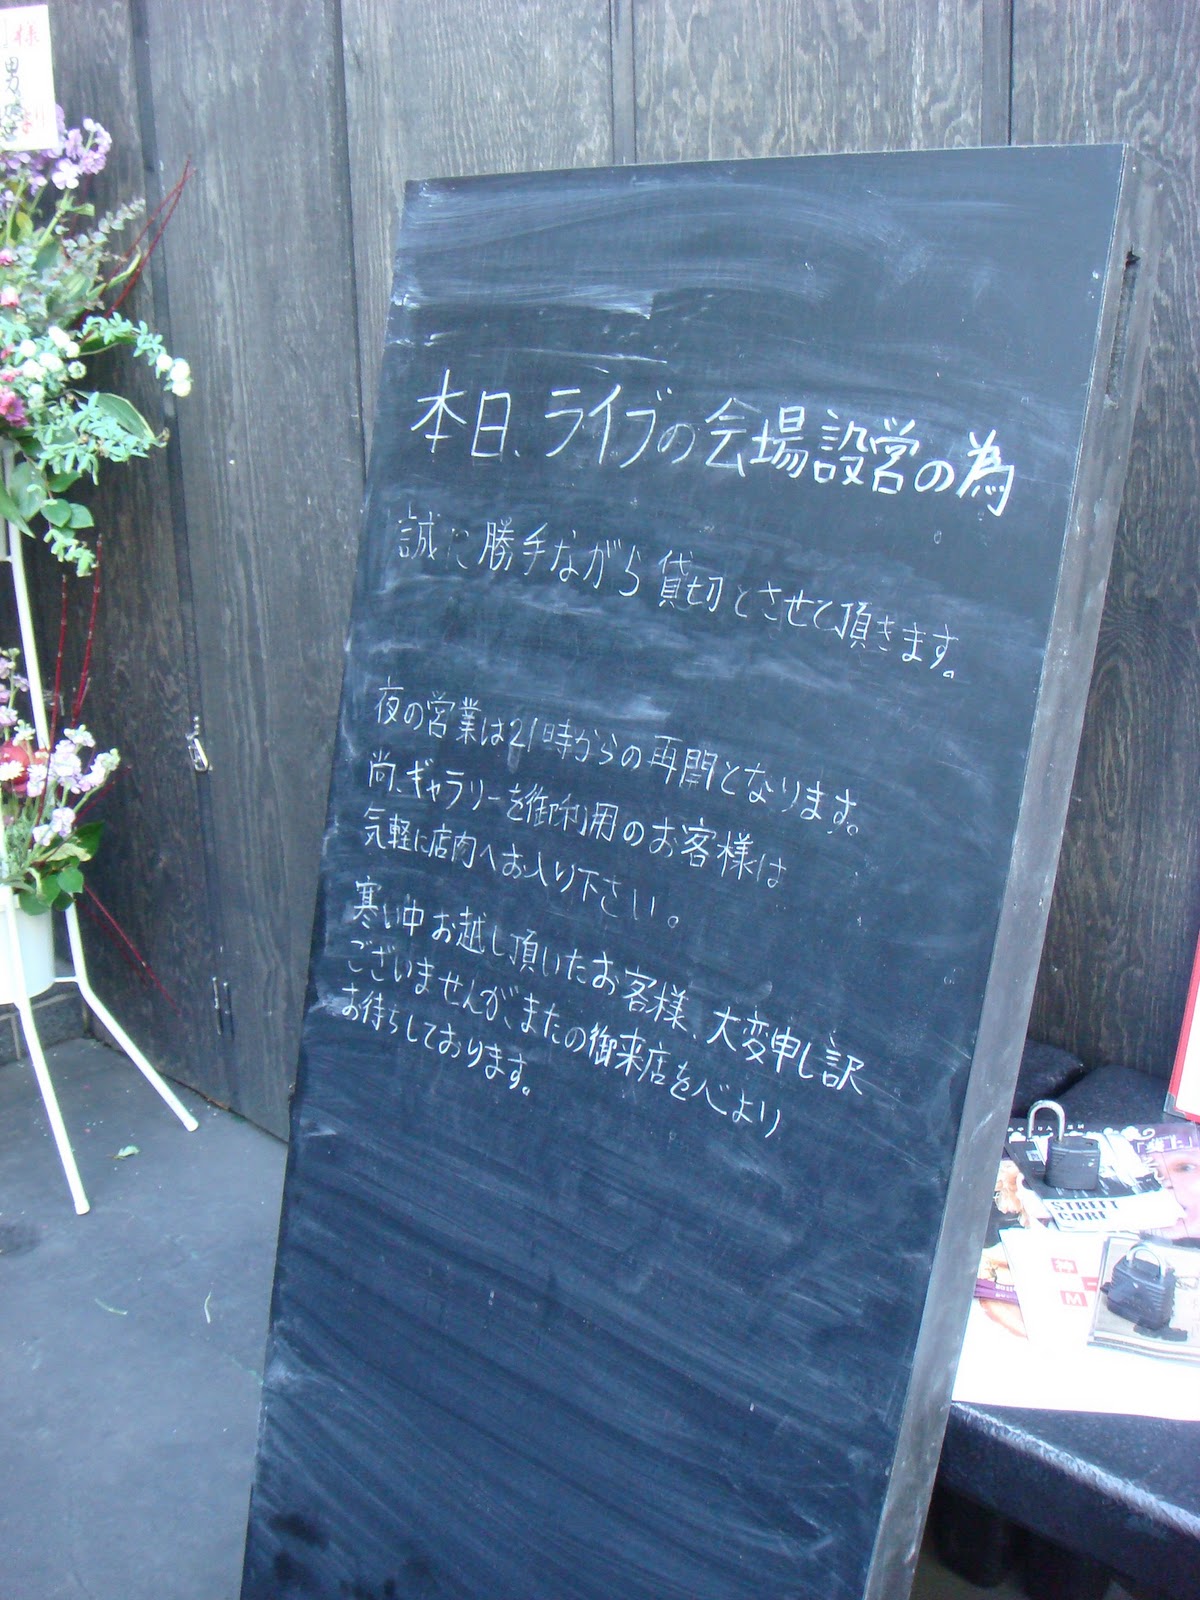 様
本日、ライブの会場設営の為
誠に勝手ながら貸切とさせて頂きます。
夜の営業は21時からの再開となります。
尚、ギャラリーを御利用のお客様は
気軽に店内へお入り下さい。
寒い中お越し頂いたお客様、大変申し訳
ございませんが、またの御来店を心より
お待ちしております。
STREET
GORE